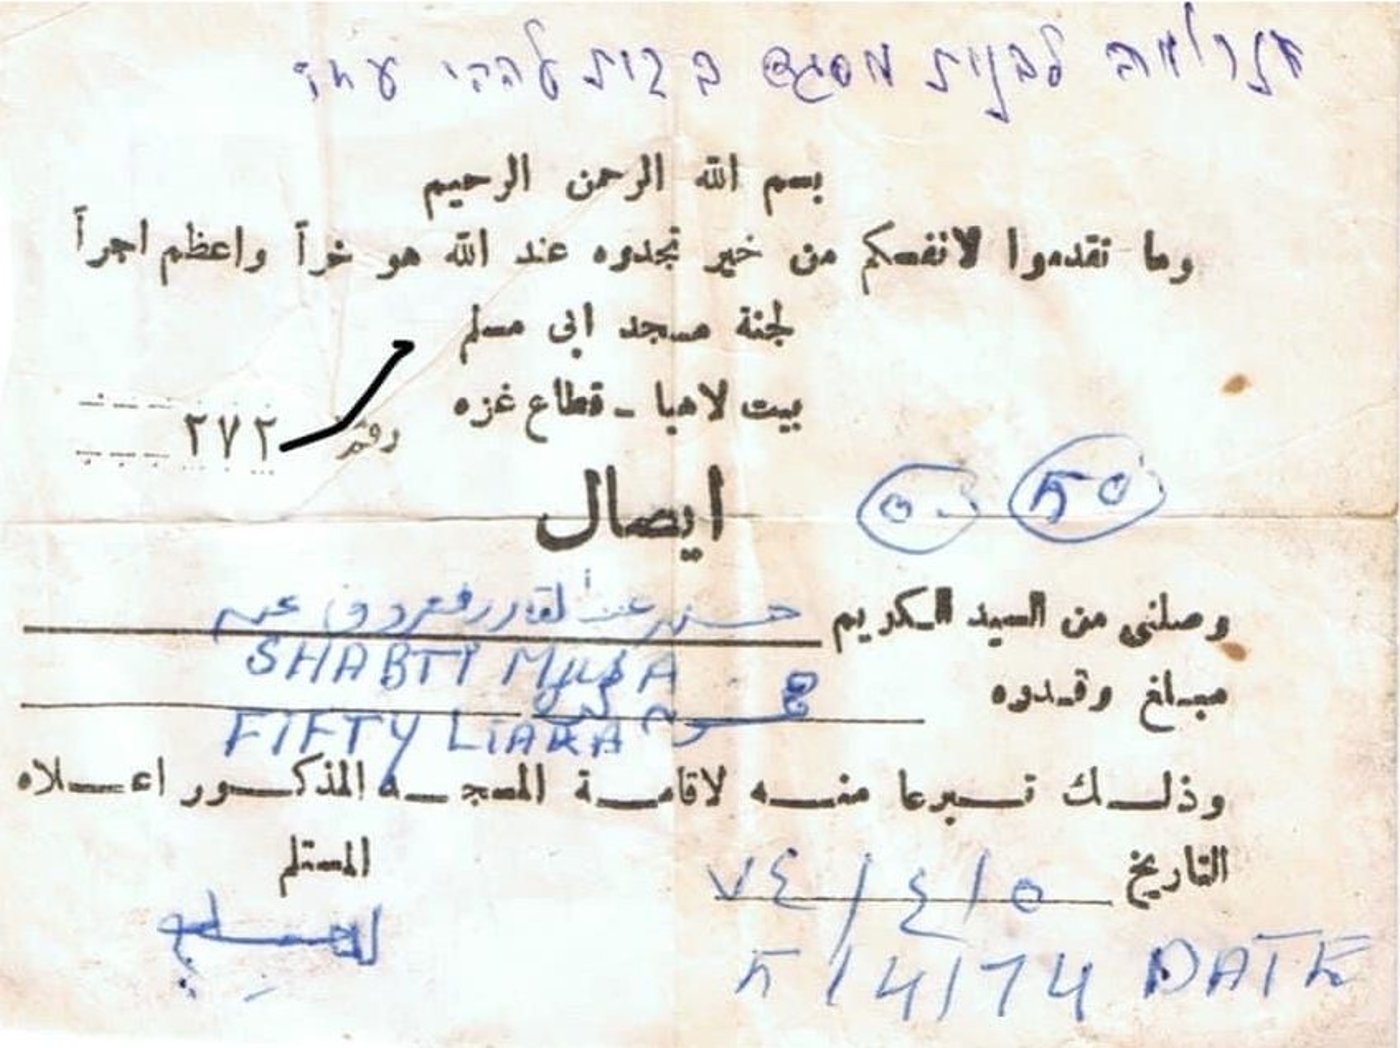 לבנית מסגד ב
بسم الله الرحمن الرحيم
وما تقدموا لانفسكم من خير تجدوه عند الله هو خيراً واعظم اجراً
لجنة مسجد ابي مسلم
بيت لاهيا - قطاع غزه
رقم ٢٧٢
ايصال
٥٠ 50
وصلني من السيد الكريم
SHABTI MUSA
مبلغ وقدوه
FIFTY LIARA
وذلك تبرعا منه لاقامة المسجد المذكور اعلاه
التاريخ ٥/٤/٧٤
المستلم
5/4/74 DATE